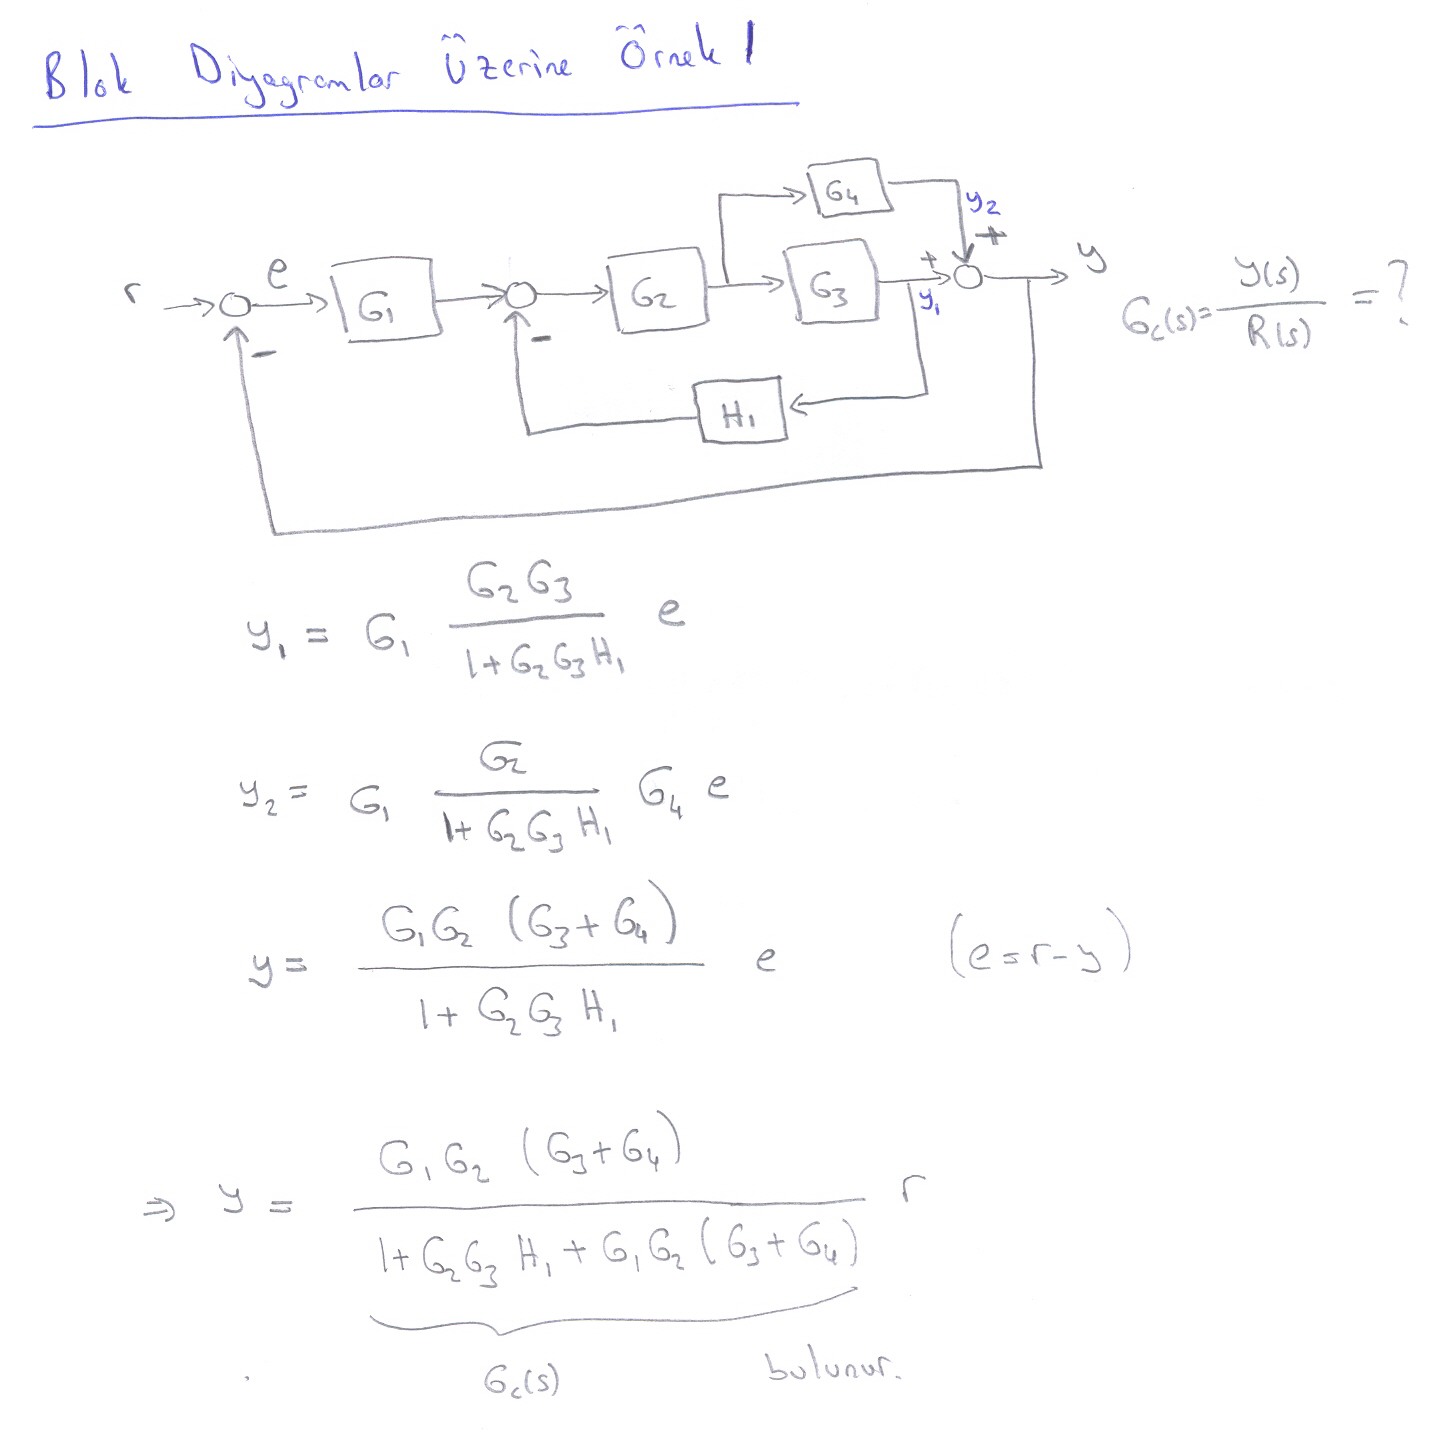 Blok Diyagramlar Üzerine Örnek 1
G4 y2
+
r e G1 G2 G3 + y
y1
- -
Gc(s) = y(s) / R(s) = ?
H1
y1 = G1 G2G3 / 1+G2G3H1 e
y2 = G1 G2 / 1+G2G3H1 G4 e
y = G1G2 (G3+G4) / 1+G2G3H1 e (e=r-y)
⇒ y = G1G2 (G3+G4) / 1+G2G3H1+G1G2(G3+G4) r
Gc(s) bulunur.